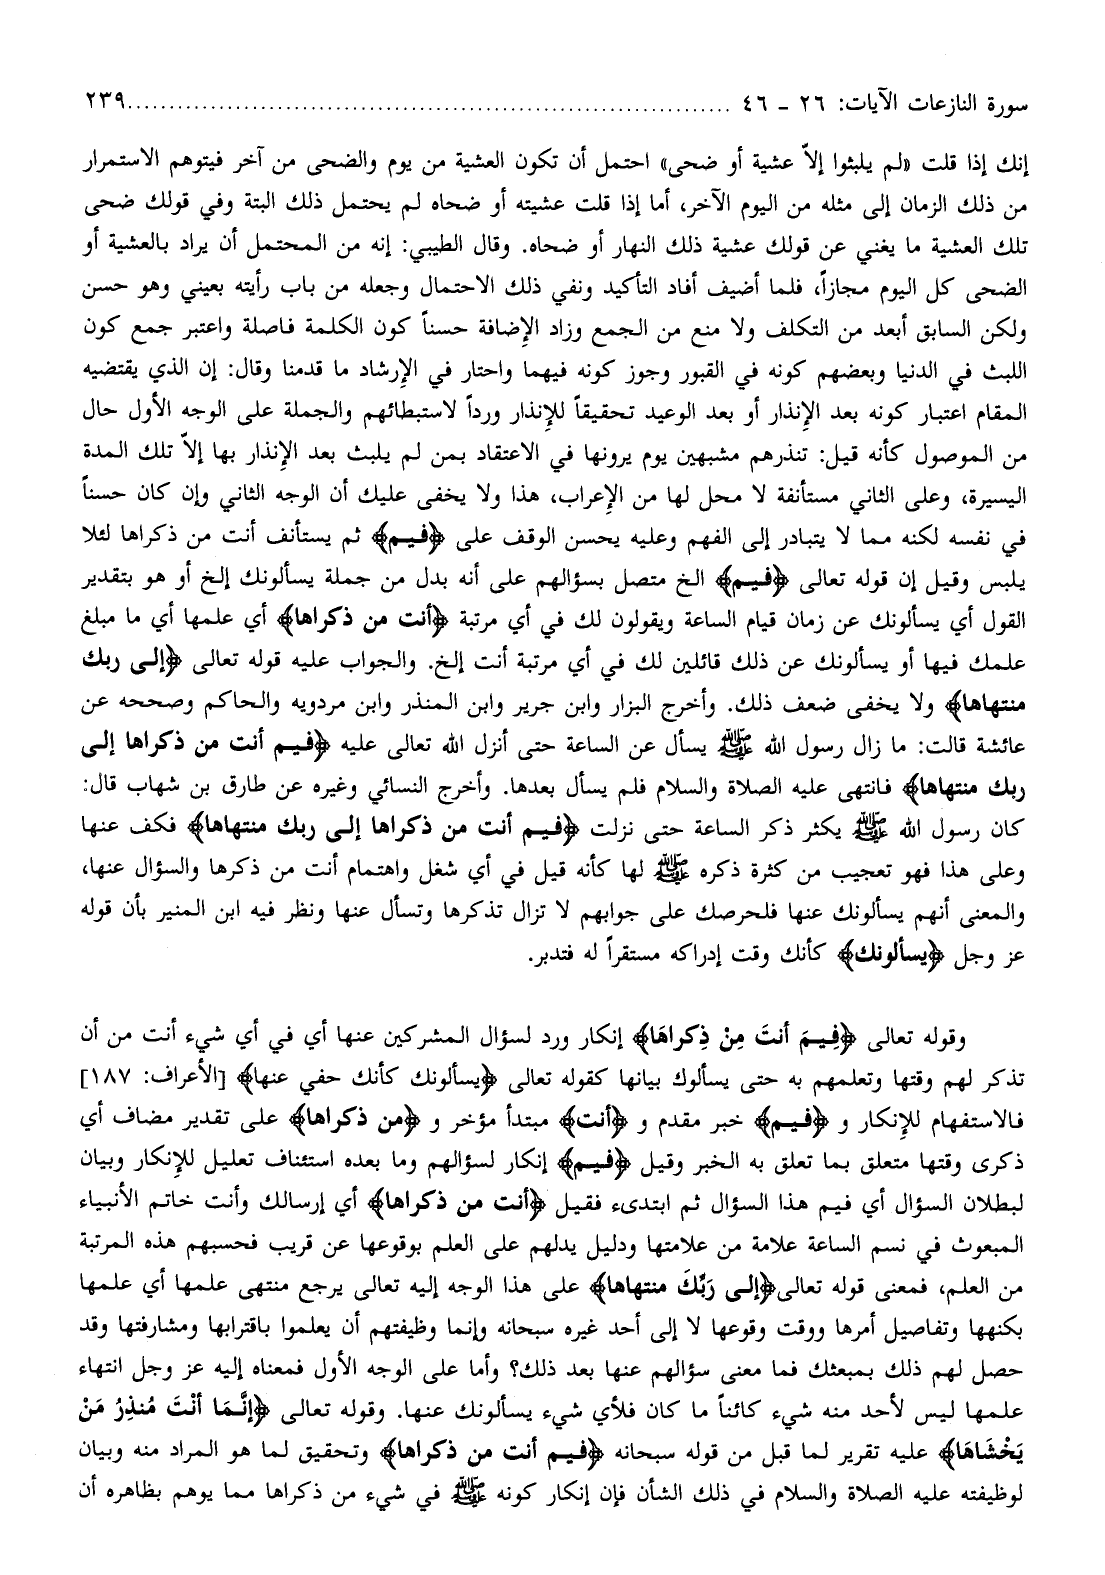 سورة النازعات الآيات: ٢٦ - ٤٦ ........................................................................ ٢٣٩
إنك إذا قلت «لم يلبثوا إلاّ عشية أو ضحى» احتمل أن تكون العشية من يوم والضحى من آخر فيتوهم الاستمرار
من ذلك الزمان إلى مثله من اليوم الآخر، أما إذا قلت عشيته أو ضحاه لم يحتمل ذلك البتة وفي قولك ضحى
تلك العشية ما يغني عن قولك عشية ذلك النهار أو ضحاه. وقال الطيبي: إنه من المحتمل أن يراد بالعشية أو
الضحى كل اليوم مجازاً، فلما أضيف أفاد التأكيد ونفي ذلك الاحتمال وجعله من باب رأيته بعيني وهو حسن
ولكن السابق أبعد من التكلف ولا منع من الجمع وزاد الإضافة حسناً كون الكلمة فاصلة واعتبر جمع كون
اللبث في الدنيا وبعضهم كونه في القبور وجوز كونه فيهما واحتار في الإرشاد ما قدمنا وقال: إن الذي يقتضيه
المقام اعتبار كونه بعد الإنذار أو بعد الوعيد تحقيقاً للإنذار ورداً لاستبطائهم والجملة على الوجه الأول حال
من الموصول كأنه قيل: تنذرهم مشبهين يوم يرونها في الاعتقاد بمن لم يلبث بعد الإنذار بها إلاّ تلك المدة
اليسيرة، وعلى الثاني مستأنفة لا محل لها من الإعراب، هذا ولا يخفى عليك أن الوجه الثاني وإن كان حسناً
في نفسه لكنه مما لا يتبادر إلى الفهم وعليه يحسن الوقف على ﴿فيم﴾ ثم يستأنف أنت من ذكراها لئلا
يلبس وقيل إن قوله تعالى ﴿فيم﴾ الخ متصل بسؤالهم على أنه بدل من جملة يسألونك إلخ أو هو بتقدير
القول أي يسألونك عن زمان قيام الساعة ويقولون لك في أي مرتبة ﴿أنت من ذكراها﴾ أي علمها أي ما مبلغ
علمك فيها أو يسألونك عن ذلك قائلين لك في أي مرتبة أنت إلخ. والجواب عليه قوله تعالى ﴿إلى ربك
منتهاها﴾ ولا يخفى ضعف ذلك. وأخرج البزار وابن جرير وابن المنذر وابن مردويه والحاكم وصححه عن
عائشة قالت: ما زال رسول الله ﷺ يسأل عن الساعة حتى أنزل الله تعالى عليه ﴿فيم أنت من ذكراها إلى
ربك منتهاها﴾ فانتهى عليه الصلاة والسلام فلم يسأل بعدها. وأخرج النسائي وغيره عن طارق بن شهاب قال:
كان رسول الله ﷺ يكثر ذكر الساعة حتى نزلت ﴿فيم أنت من ذكراها إلى ربك منتهاها﴾ فكف عنها
وعلى هذا فهو تعجيب من كثرة ذكره ﷺ لها كأنه قيل في أي شغل واهتمام أنت من ذكرها والسؤال عنها،
والمعنى أنهم يسألونك عنها فلحرصك على جوابهم لا تزال تذكرها وتسأل عنها ونظر فيه ابن المنير بأن قوله
عز وجل ﴿يسألونك﴾ كأنك وقت إدراكه مستقراً له فتدبر.
وقوله تعالى ﴿فِيمَ أنتَ مِنْ ذِكراهَا﴾ إنكار ورد لسؤال المشركين عنها أي في أي شيء أنت من أن
تذكر لهم وقتها وتعلمهم به حتى يسألوك بيانها كقوله تعالى ﴿يسألونك كأنك حفي عنها﴾ [الأعراف: ١٨٧]
فالاستفهام للإنكار و ﴿فيم﴾ خبر مقدم و ﴿أنت﴾ مبتدأ مؤخر و ﴿من ذكراها﴾ على تقدير مضاف أي
ذكرى وقتها متعلق بما تعلق به الخبر وقيل ﴿فيم﴾ إنكار لسؤالهم وما بعده استئناف تعليل للإنكار وبيان
لبطلان السؤال أي فيم هذا السؤال ثم ابتدىء فقيل ﴿أنت من ذكراها﴾ أي إرسالك وأنت خاتم الأنبياء
المبعوث في نسم الساعة علامة من علامتها ودليل يدلهم على العلم بوقوعها عن قريب فحسبهم هذه المرتبة
من العلم، فمعنى قوله تعالى﴿إلى رَبِّكَ منتهاها﴾ على هذا الوجه إليه تعالى يرجع منتهى علمها أي علمها
بكنهها وتفاصيل أمرها ووقت وقوعها لا إلى أحد غيره سبحانه وإنما وظيفتهم أن يعلموا باقترابها ومشارفتها وقد
حصل لهم ذلك بمبعثك فما معنى سؤالهم عنها بعد ذلك؟ وأما على الوجه الأول فمعناه إليه عز وجل انتهاء
علمها ليس لأحد منه شيء كائناً ما كان فلأي شيء يسألونك عنها. وقوله تعالى ﴿إنَّمَا أنْتَ مُنذِرُ مَنْ
يَخْشَاهَا﴾ عليه تقرير لما قبل من قوله سبحانه ﴿فيم أنت من ذكراها﴾ وتحقيق لما هو المراد منه وبيان
لوظيفته عليه الصلاة والسلام في ذلك الشأن فإن إنكار كونه ﷺ في شيء من ذكراها مما يوهم بظاهره أن